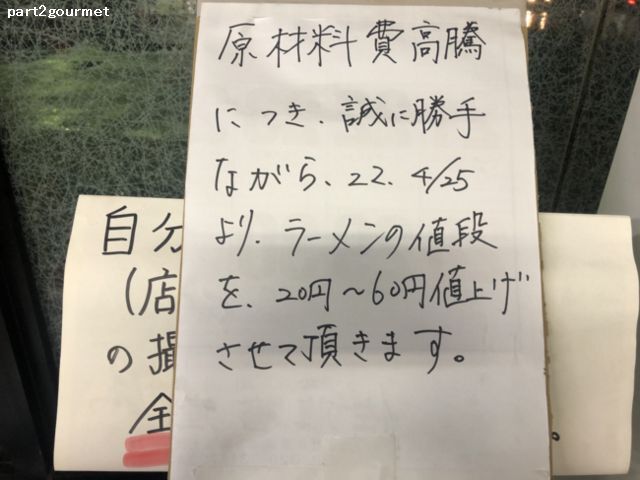 part2gourmet
原材料費高騰
につき、誠に勝手
ながら、22、4/25
より、ラーメンの値段
を、20円〜60円値上げ
させて頂きます。
自分
(店
の撮
全
。